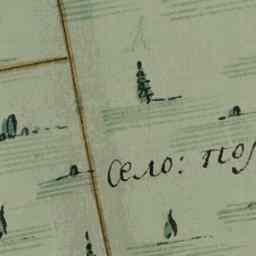 село: пор